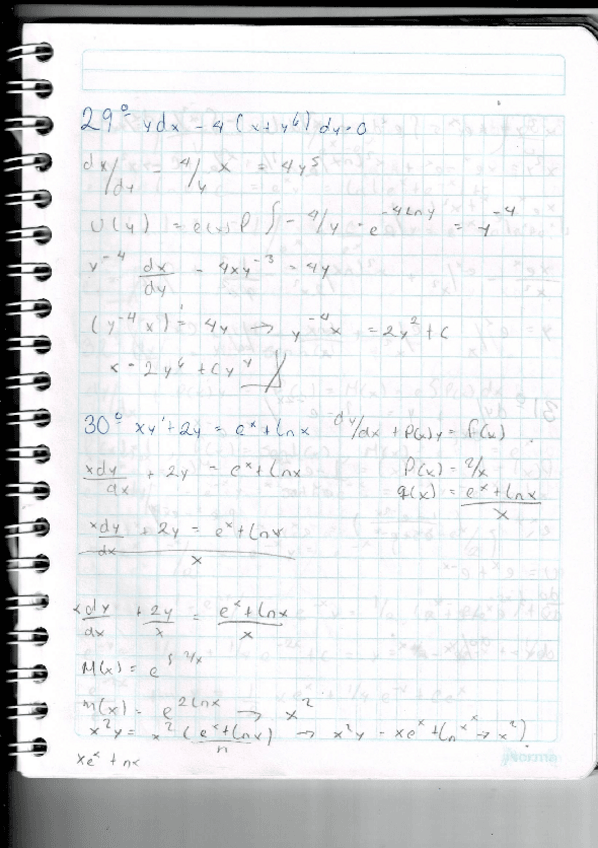 29° ydx - 4(x + y⁶) dy = 0
dx/dy - 4/y x = 4y⁵
U(y) = e(x)P ∫ - 4/y · e^(-4 ln y) = y⁻⁴
y⁻⁴ dx/dy - 4xy⁻³ = 4y
(y⁻⁴x)' = 4y → y⁻⁴x = 2y² + C
x = 2y⁶ + Cy⁴
30° xy' + 2y = eˣ + ln x dy/dx + P(x)y = f(x)
xdy/dx + 2y = eˣ + ln x P(x) = 2/x
q(x) = (eˣ + ln x)/x
(xdy/dx + 2y = eˣ + ln x)/x
x dy/dx + 2y/x = (eˣ + ln x)/x
M(x) = e^(∫ 2/x)
m(x) = e^(2 ln x) → x²
x²y = x² (eˣ + ln x)/n → x²y = xeˣ + (ln xˣ → x²)
xeˣ + nx
norma